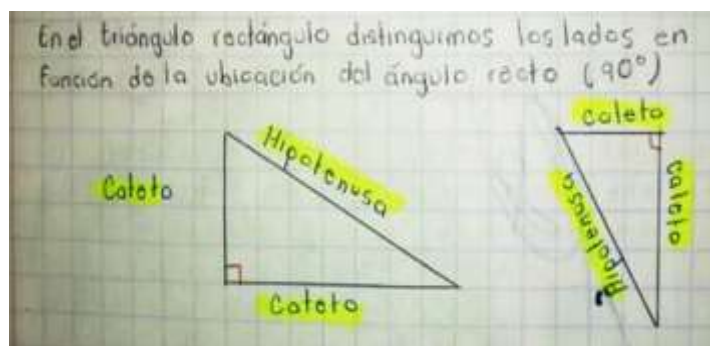 En el triángulo rectángulo distinguimos los lados en
función de la ubicación del ángulo recto (90°)
Cateto
Hipotenusa
Cateto
cateto
Hipotenusa
cateto